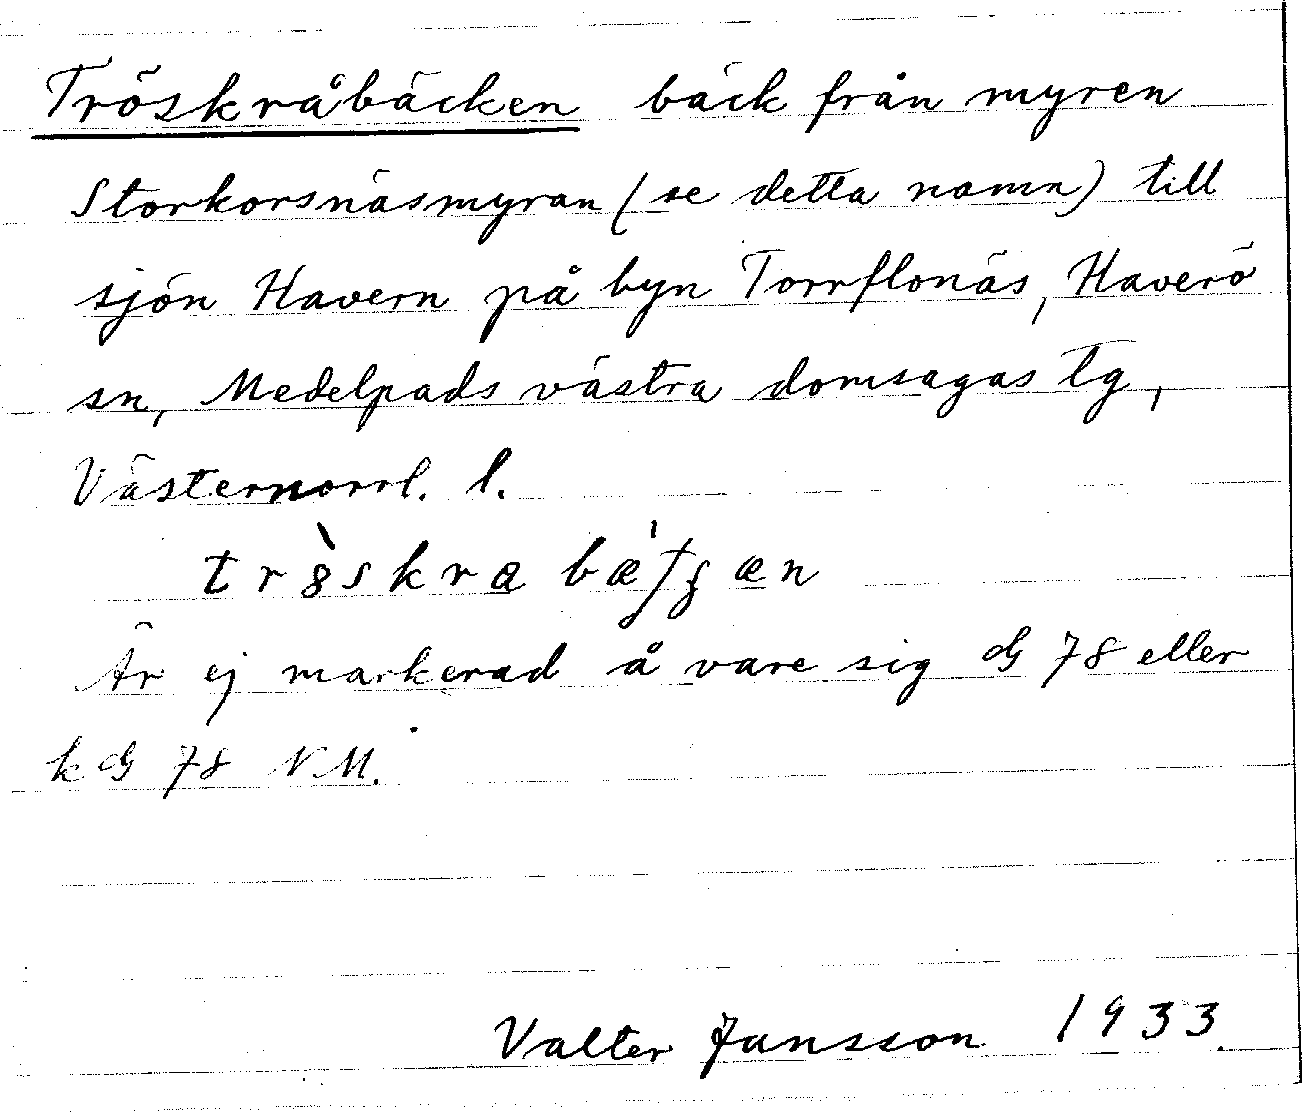 Tröskråbäcken bäck från myren
Storkorsnäsmyran (se detta namn) till
sjön Havern på byn Torrflonäs, Haverö
sn, Medelpads västra domsagas tg,
Västernorrl. l.
Är ej markerad å vare sig G 78 eller
k G 78 NM.
Valter Jansson 1933.